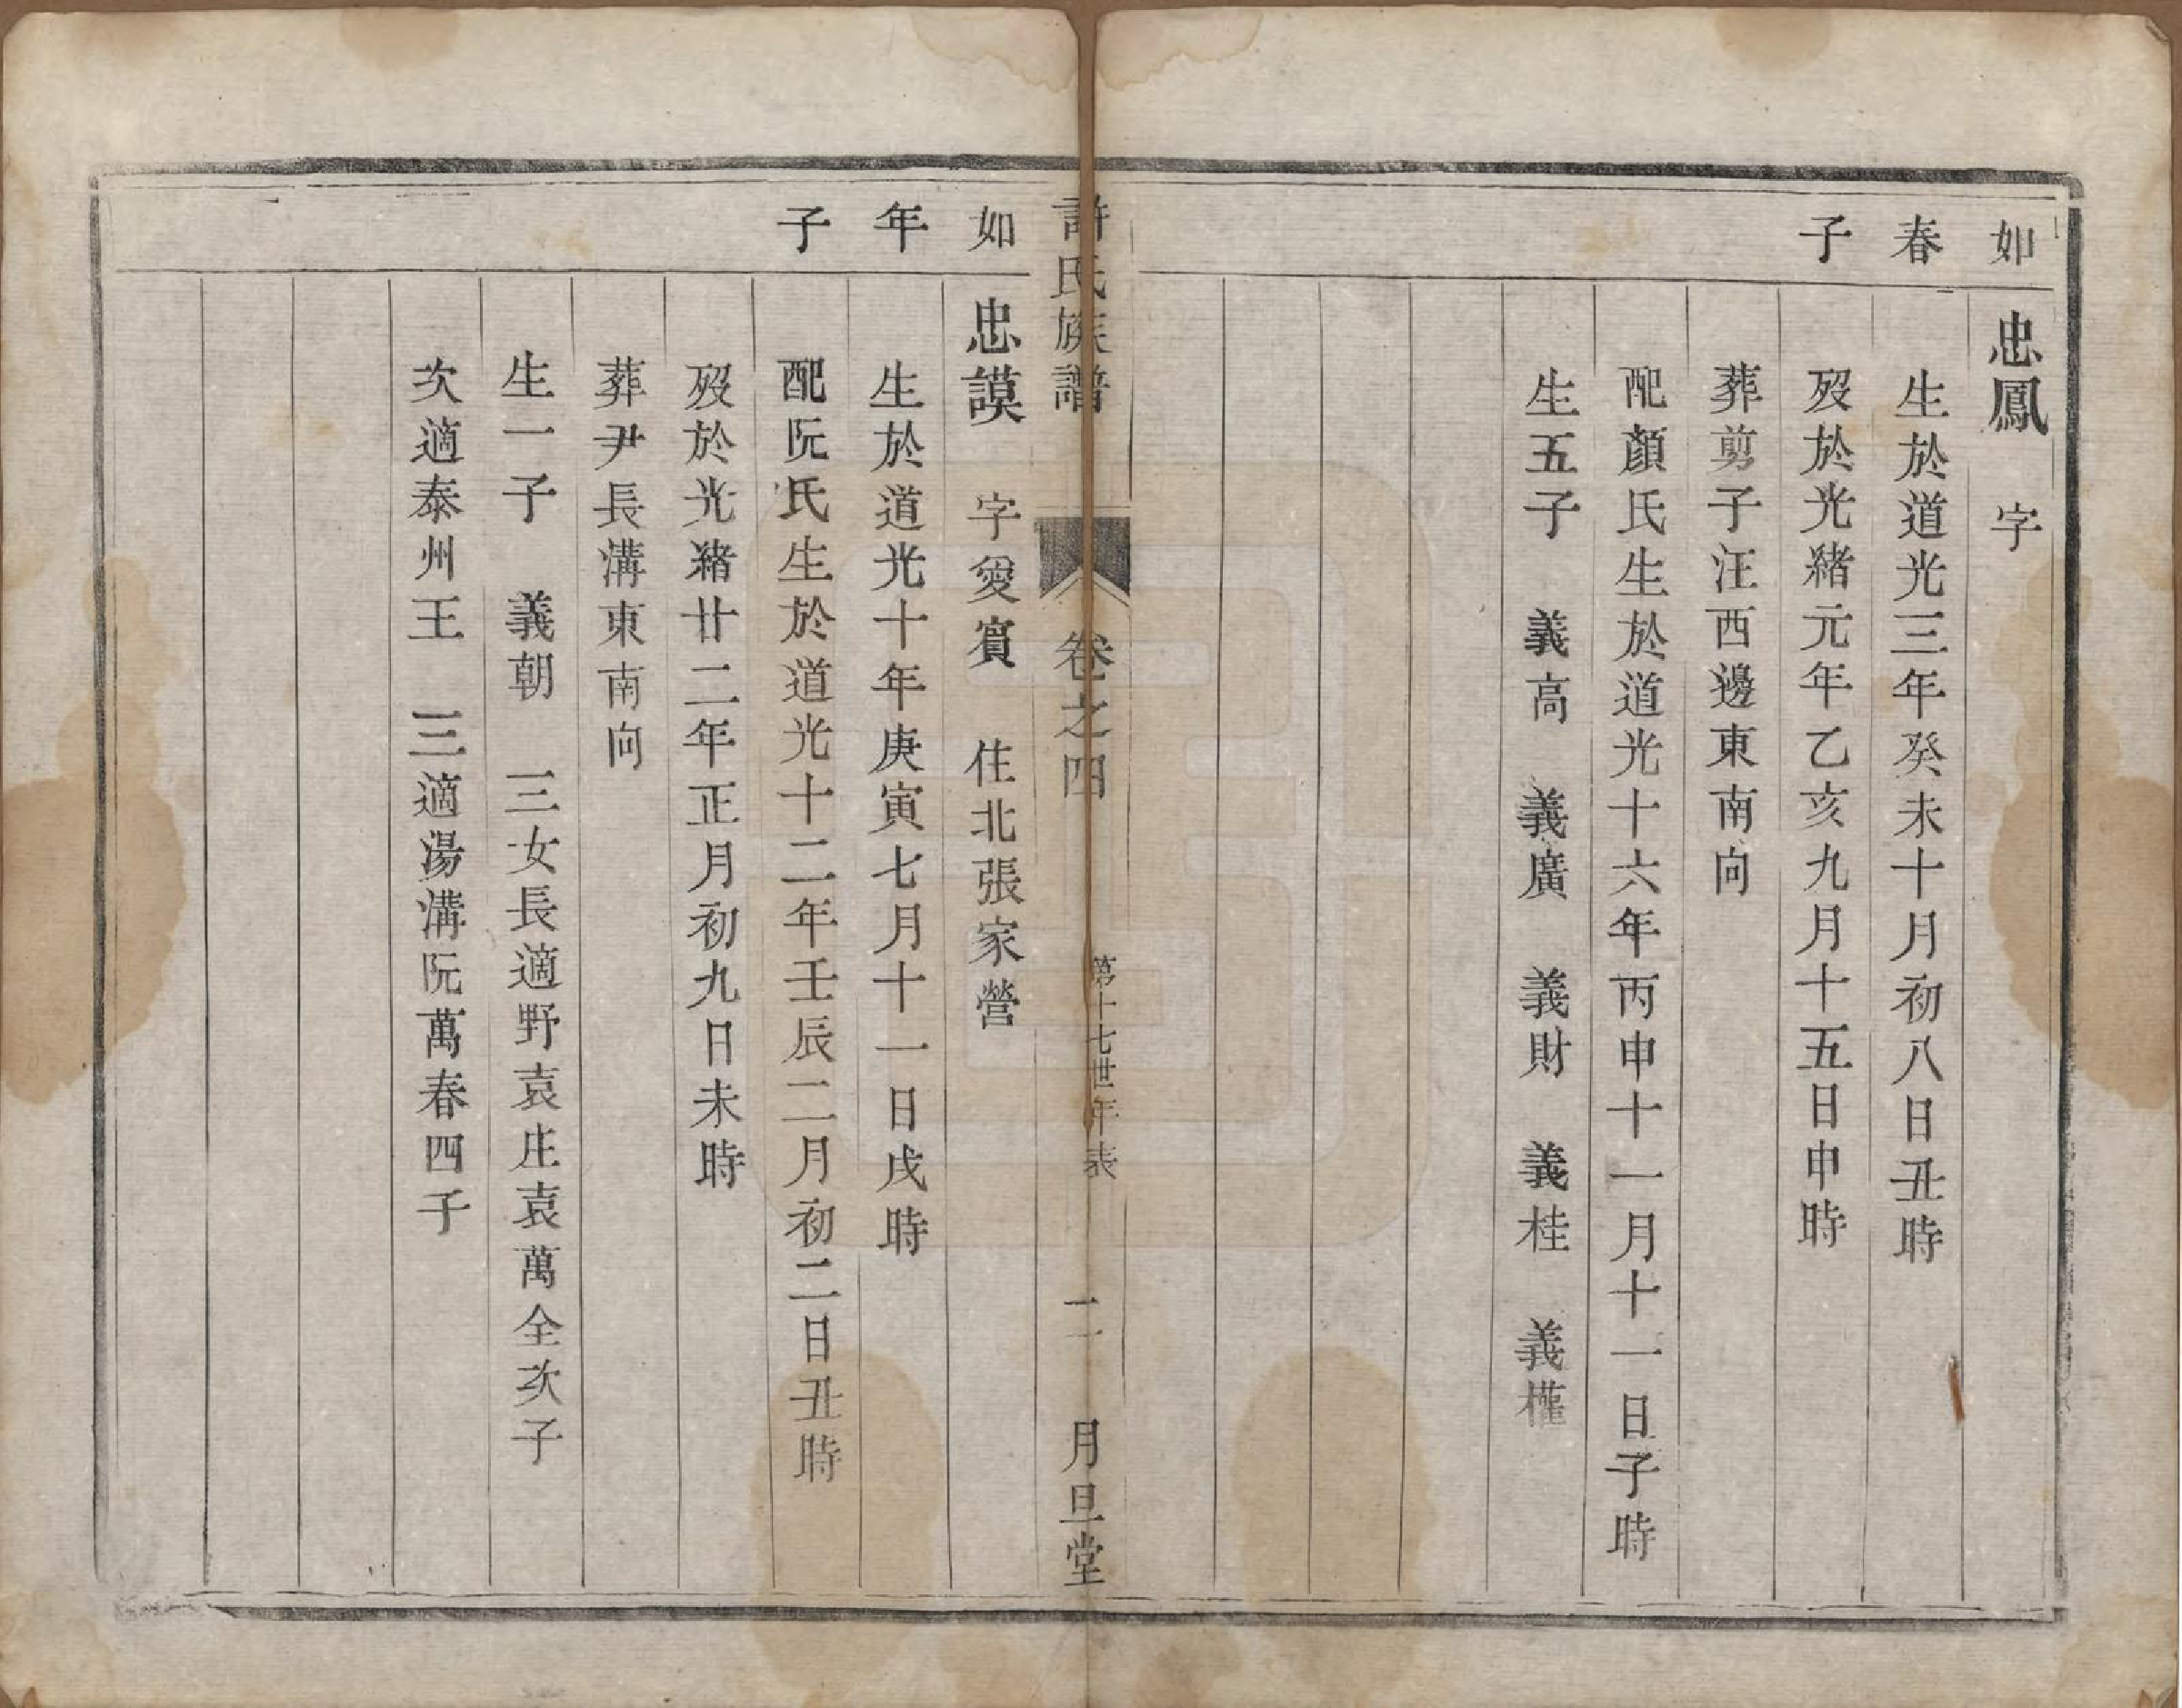 如春子
忠鳳　字
生於道光三年癸未十月初八日丑時
歿於光緒元年乙亥九月十五日申時
葬剪子汪西邊東南向
配顏氏生於道光十六年丙申十一月十一日子時
生五子　義高　義廣　義財　義桂　義權
許氏族譜　卷之四　第十七世年表　二　月旦堂
如年子
忠謨　字愛賓　住北張家營
生於道光十年庚寅七月十一日戌時
配阮氏生於道光十二年壬辰二月初二日丑時
歿於光緒廿二年正月初九日未時
葬尹長溝東南向
生一子　義朝　三女長適野袁庄袁萬全次子
次適泰州王　三適湯溝阮萬春四子